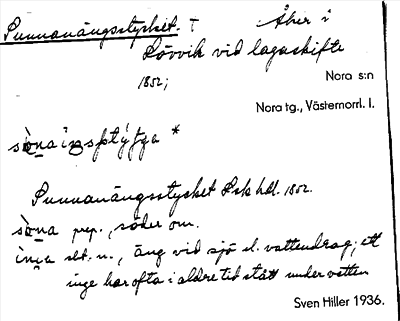 Sunnanängsstycket. T Åker i
Lövvik vid lagaskifte
1852;
Nora s:n
Nora tg., Västernorrl. l.
Sunnanängsstycket Lsk hdl. 1852.
prep., söder om.
sbst. n., äng vid sjö el. vattendrag; ett
inge har ofta i äldre tid stått under vatten
Sven Hiller 1936.